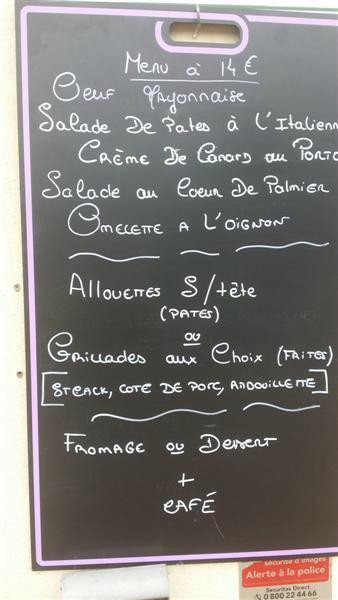 Menu à 14 €
Oeuf Mayonnaise
Salade De Pates à L'Italienn
Crème De Canard au Porto
Salade au Coeur De Palmier
Omelette a L'oignon
Allouettes S/tête
(pates)
ou
Grillades aux Choix (frites)
[Steack, cote de porc, andouillette]
Fromage ou Dessert
+
café
sécurité d'images
Alerte à la police
Securitas Direct
0 800 22 44 66